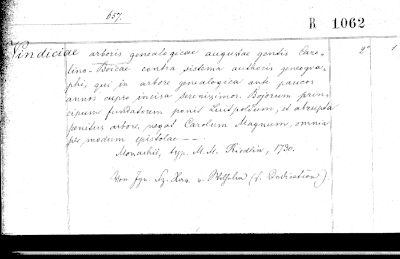 657.
R 1062
Vindiciae arboris genealogicae augustae gentis Caro-
lino-Boicae contra sistema authoris geneogra-
phi, qui in arbore genealogica ante paucos
annos cupro incisa Serenissimor. Bojorum prin-
cipum fundatorem ponit Luitpoldum, et abrupta
penitus arbore, negat Carolum Magnum, omnia
per modum epistolae --
Monachii, typ. M. M. Riedlin, 1730.
Von Ign. Fz. Xav. v. Wilhelm (s. Dedication)
2°
1